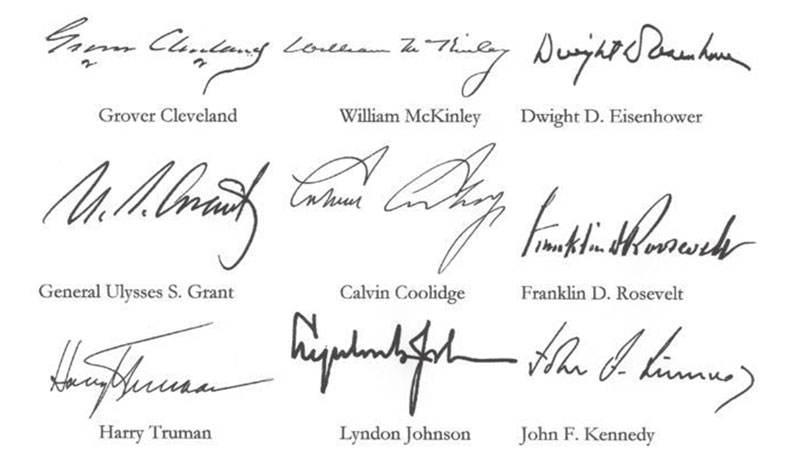 Grover Cleveland William McKinley Dwight D Eisenhower
Grover Cleveland William McKinley Dwight D. Eisenhower
U. S. Grant Calvin Coolidge Franklin D Roosevelt
General Ulysses S. Grant Calvin Coolidge Franklin D. Rosevelt
Harry Truman Lyndon B Johnson John F. Kennedy
Harry Truman Lyndon Johnson John F. Kennedy